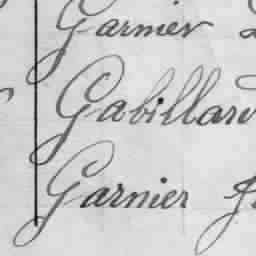 Garnier
Gabillard
Garnier